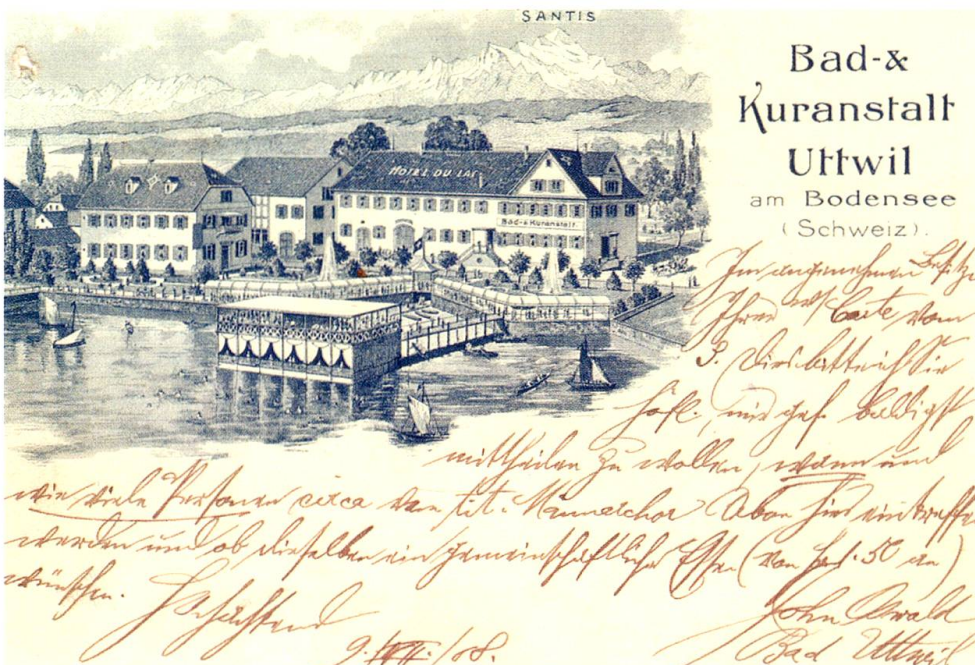 SANTIS
Bad-&
Kuranstalt
Uttwil
am Bodensee
(Schweiz).
HOTEL DU LAC
Bad-& Kuranstalt.
Im angenehmen Besitze
Ihrer Carte vom
3. dies bitte ich Sie
höfl., mir gef. baldigst
mittheilen zu wollen, wann und
wie viele Personen circa von tit. Männerchor hier eintreffen
werden und ob dieselben ein gemeinschaftliches Essen (von 50 an)
wünschen.
John Oswald
Bad Uttwil